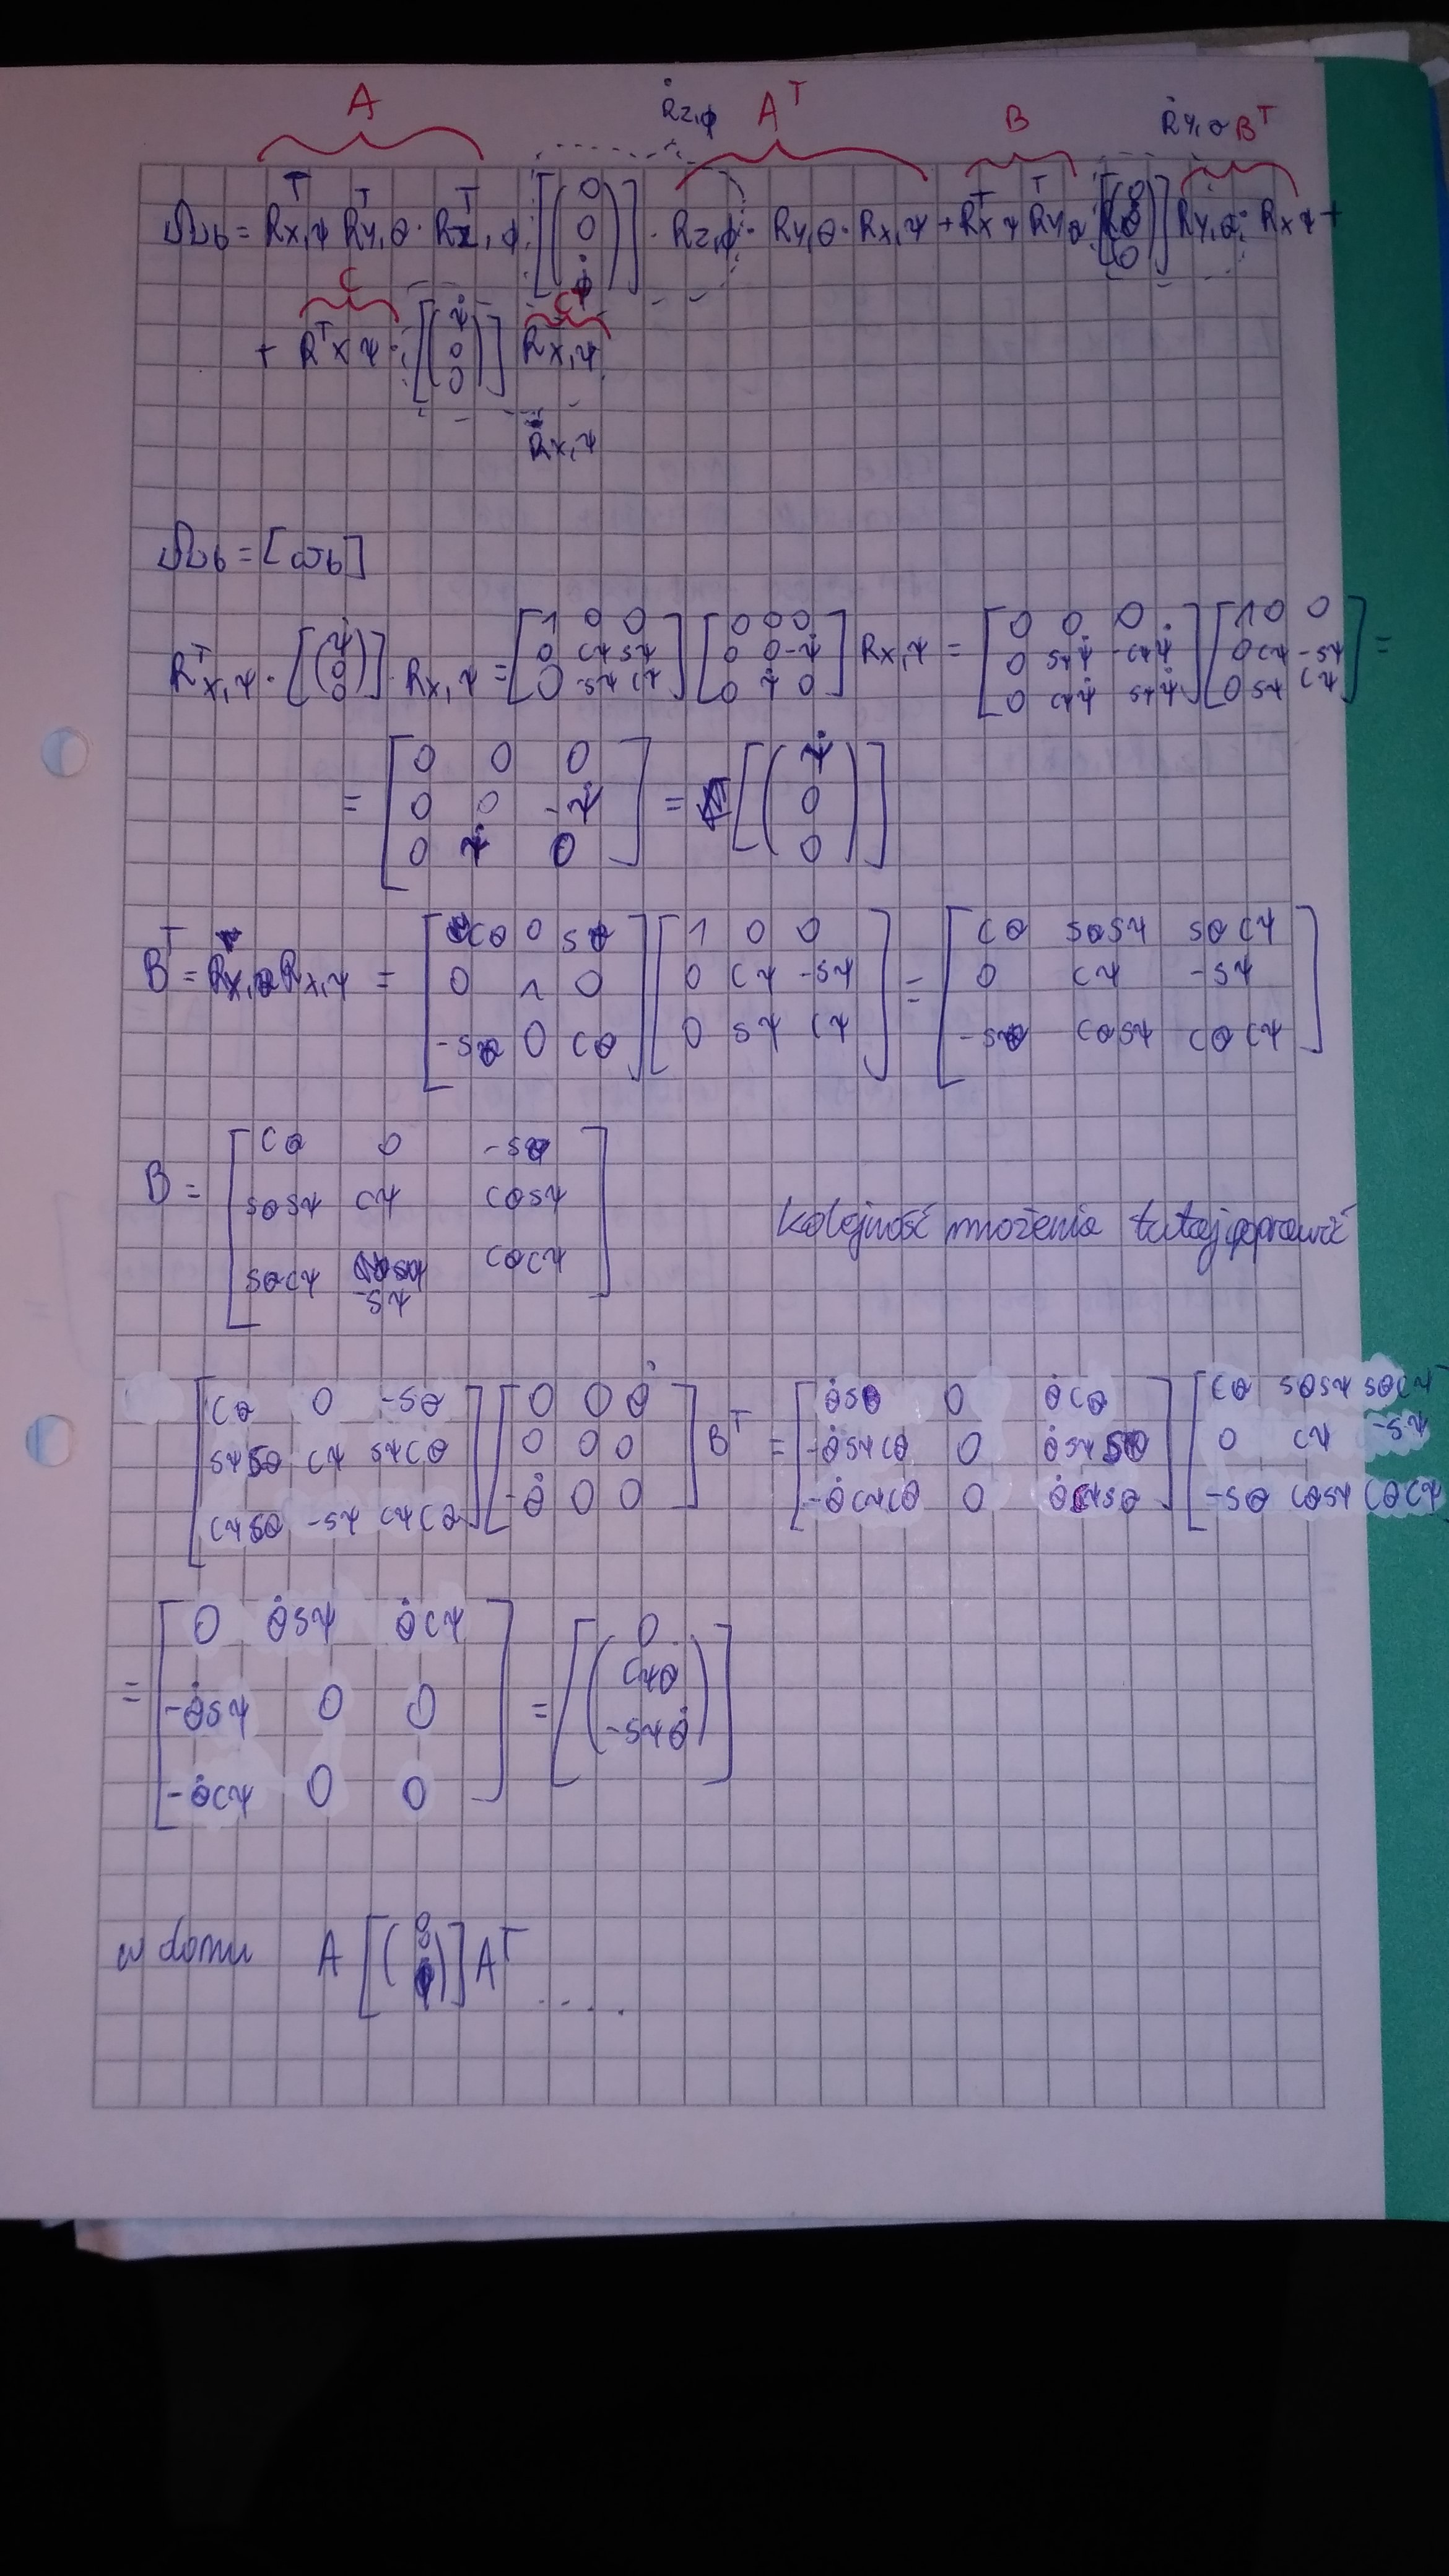 A Ṙz,φ Aᵀ B Ṙy,θ Bᵀ
Ωb = Rᵀx,ψ Rᵀy,θ · Rᵀz,φ · [(0 0 φ̇)] · Rz,φ · Ry,θ · Rx,ψ + Rᵀxψ Rᵀyθ Ry,θ · Rxψ +
C Cᵀ
+ Rᵀxψ · [(ψ̇ 0 0)] Rx,ψ
Ṙx,ψ
Ωb = [ωb]
Rᵀx,ψ · [(ψ̇ 0 0)] · Rx,ψ = [1 0 0; 0 cψ sψ; 0 -sψ cψ] [0 0 0; 0 0 -ψ̇; 0 ψ̇ 0] Rx,ψ = [0 0 0; 0 sψψ̇ -cψψ̇; 0 cψψ̇ sψψ̇] [1 0 0; 0 cψ -sψ; 0 sψ cψ] =
= [0 0 0; 0 0 -ψ̇; 0 ψ̇ 0] = [(ψ̇ 0 0)]
Bᵀ = Rx,θ Rx,ψ = [cθ 0 sθ; 0 1 0; -sθ 0 cθ] [1 0 0; 0 cψ -sψ; 0 sψ cψ] = [cθ sθsψ sθcψ; 0 cψ -sψ; -sθ cθsψ cθcψ]
B = [cθ 0 -sθ; sθsψ cψ cθsψ; sθcψ -sψ cθcψ]
kolejność mnożenia tutaj poprawić
[cθ 0 -sθ; sψsθ cψ sψcθ; cψsθ -sψ cψcθ] [0 0 θ̇; 0 0 0; -θ̇ 0 0] Bᵀ = [θ̇sθ 0 θ̇cθ; -θ̇sψcθ 0 θ̇sψsθ; -θ̇cψcθ 0 θ̇cψsθ] [cθ sθsψ sθcψ; 0 cψ -sψ; -sθ cθsψ cθcψ]
= [0 θ̇sψ θ̇cψ; -θ̇sψ 0 0; -θ̇cψ 0 0] = [(0 cψθ̇ -sψθ̇)]
w domu A [(0 0 φ̇)] Aᵀ ....